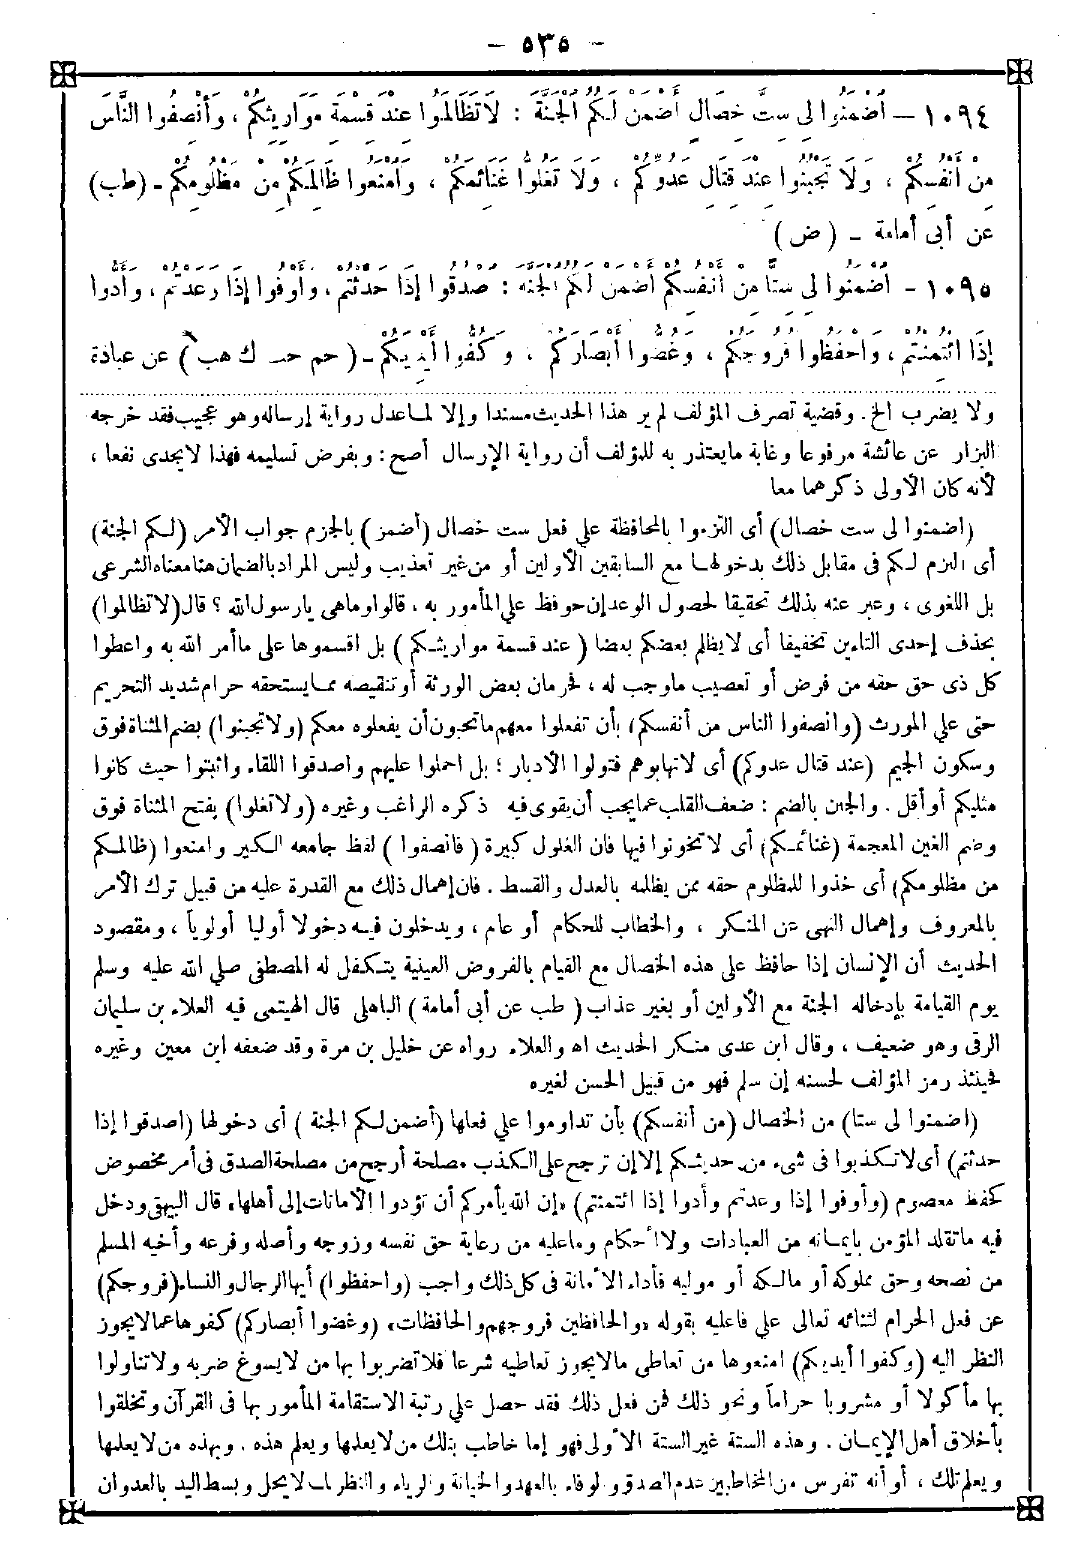 - ٥٣٥ -
١٠٩٤ - اضْمَنُوا لِي سِتَّ خِصَالٍ أَضْمَنْ لَكُمُ الْجَنَّةَ : لَا تَظَالَمُوا عِنْدَ قِسْمَةِ مَوَارِيثِكُمْ ، وَأَنْصِفُوا النَّاسَ
مِنْ أَنْفُسِكُمْ ، وَلَا تَجْبُنُوا عِنْدَ قِتَالِ عَدُوِّكُمْ ، وَلَا تَغُلُّوا غَنَائِمَكُمْ ، وَامْنَعُوا ظَالِمَكُمْ مِنْ مَظْلُومِكُمْ - (طب)
عن أبى أمامة - ( ض )
١٠٩٥ - اضْمَنُوا لِي سِتًّا مِنْ أَنْفُسِكُمْ أَضْمَنْ لَكُمُ الْجَنَّةَ : صْدُقُوا إِذَا حَدَّثْتُمْ ، وَأَوْفُوا إِذَا وَعَدْتُمْ ، وَأَدُّوا
إِذَا ائْتُمِنْتُمْ ، وَاحْفَظُوا فُرُوجَكُمْ ، وَغُضُّوا أَبْصَارَكُمْ ، وَكُفُّوا أَيْدِيَكُمْ - ( حم حب ك هب ) عن عبادة
ولا يضرب الخ . وقضية تصرف المؤلف لم ير هذا الحديث مسندا وإلا لما عدل رواية إرساله وهو عجيب فقد خرجه
البزار عن عائشة مرفوعا وغاية ما يعتذر به للمؤلف أن رواية الإرسال أصح : وبفرض تسليمه فهذا لا يجدى نفعا ،
لأنه كان الأولى ذكرهما معا
(اضمنوا لى ست خصال) أى التزموا بالمحافظة على فعل ست خصال (أضمن) بالجزم جواب الأمر (لكم الجنة)
أى التزم لكم فى مقابل ذلك بدخولها مع السابقين الأولين أو من غير تعذيب وليس المراد بالضمان هنا معناه الشرعى
بل اللغوى ، وعبر عنه بذلك تحقيقا لحصول الوعد إن حوفظ على المأمور به ، قالوا وما هى يارسول الله ؟ قال (لا تظالموا)
بحذف إحدى التاءين تخفيفا أى لا يظلم بعضكم بعضا ( عند قسمة مواريثكم ) بل اقسموها على ما أمر الله به واعطوا
كل ذى حق حقه من فرض أو تعصيب ماوجب له ، فحرمان بعض الورثة أو تنقيصه مما يستحقه حرام شديد التحريم
حتى على المورث (وانصفوا الناس من أنفسكم) بأن تفعلوا معهم ما تحبون أن يفعلوه معكم (ولا تجبنوا) بضم المثناة فوق
وسكون الجيم (عند قتال عدوكم) أى لا تهابوهم فتولوا الأدبار ؛ بل احملوا عليهم واصدقوا اللقاء واثبتوا حيث كانوا
مثليكم أو أقل . والجبن بالضم : ضعف القلب عما يجب أن يقوى فيه ذكره الراغب وغيره (ولا تغلوا) بفتح المثناة فوق
وضم الغين المعجمة (غنائمكم) أى لا تخونوا فيها فان الغلول كبيرة ( فانصفوا ) لفظ جامعه الكبير وامنعوا (ظالمكم
من مظلومكم) أى خذوا للمظلوم حقه ممن يظلمه بالعدل والقسط . فان إهمال ذلك مع القدرة عليه من قبيل ترك الأمر
بالمعروف وإهمال النهى عن المنكر ، والخطاب للحكام أو عام ، ويدخلون فيه دخولا أوليا أولوياً ، ومقصود
الحديث أن الإنسان إذا حافظ على هذه الخصال مع القيام بالفروض العينية يتكفل له المصطفى صلى الله عليه وسلم
يوم القيامة بإدخاله الجنة مع الأولين أو بغير عذاب ( طب عن أبى أمامة ) الباهلى قال الهيتمى فيه العلاء بن سليمان
الرقى وهو ضعيف ، وقال ابن عدى منكر الحديث اه والعلاء رواه عن خليل بن مرة وقد ضعفه ابن معين وغيره
فحينئذ رمز المؤلف لحسنه إن سلم فهو من قبيل الحسن لغيره
(اضمنوا لى ستا) من الخصال (من أنفسكم) بأن تداوموا على فعلها (أضمن لكم الجنة ) أى دخولها (اصدقوا إذا
حدثتم) أى لا تكذبوا فى شىء من حديثكم إلا إن ترجح على الكذب مصلحة أرجح من مصلحة الصدق فى أمر مخصوص
كحفظ معصوم (وأوفوا إذا وعدتم وأدوا إذا ائتمنتم) «إن الله يأمركم أن تؤدوا الأمانات إلى أهلها» قال البيهقى ودخل
فيه ما تقلد المؤمن بإيمانه من العبادات والأحكام وماعليه من رعاية حق نفسه وزوجه وأصله وفرعه وأخيه المسلم
من نصحه وحق مملوكه أو مالكه أو موليه فأداء الأمانة فى كل ذلك واجب (واحفظوا) أيها الرجال والنساء (فروجكم)
عن فعل الحرام لثنائه تعالى على فاعليه بقوله «والحافظين فروجهم والحافظات» (وغضوا أبصاركم) كفوها عما لا يجوز
النظر اليه (وكفوا أيديكم) امنعوها من تعاطى مالا يجوز تعاطيه شرعا فلا تضربوا بها من لا يسوغ ضربه ولا تناولوا
بها مأكولا أو مشروبا حراماً ونحو ذلك فمن فعل ذلك فقد حصل على رتبة الاستقامة المأمور بها فى القرآن وتخلقوا
بأخلاق أهل الإيمان . وهذه الستة غير الستة الأولى فهو إما خاطب بتلك من لا يعلمها ويعلم هذه . وبهذه من لا يعلمها
ويعلم تلك ، أو أنه تفرس من المخاطبين عدم الصدق والوفاء بالعهد والخيانة والرياء والنظر لما لا يحل وبسط اليد بالعدوان